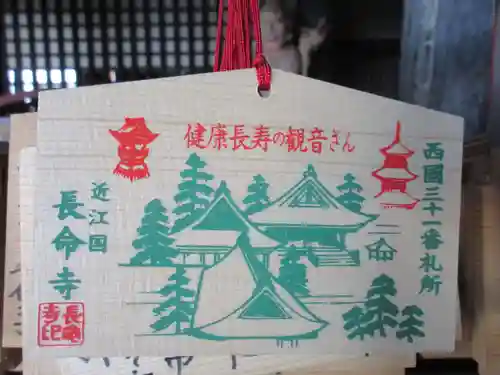 健康長寿の観音さん
西国三十一番札所
近江国
長命寺
長命
寺印